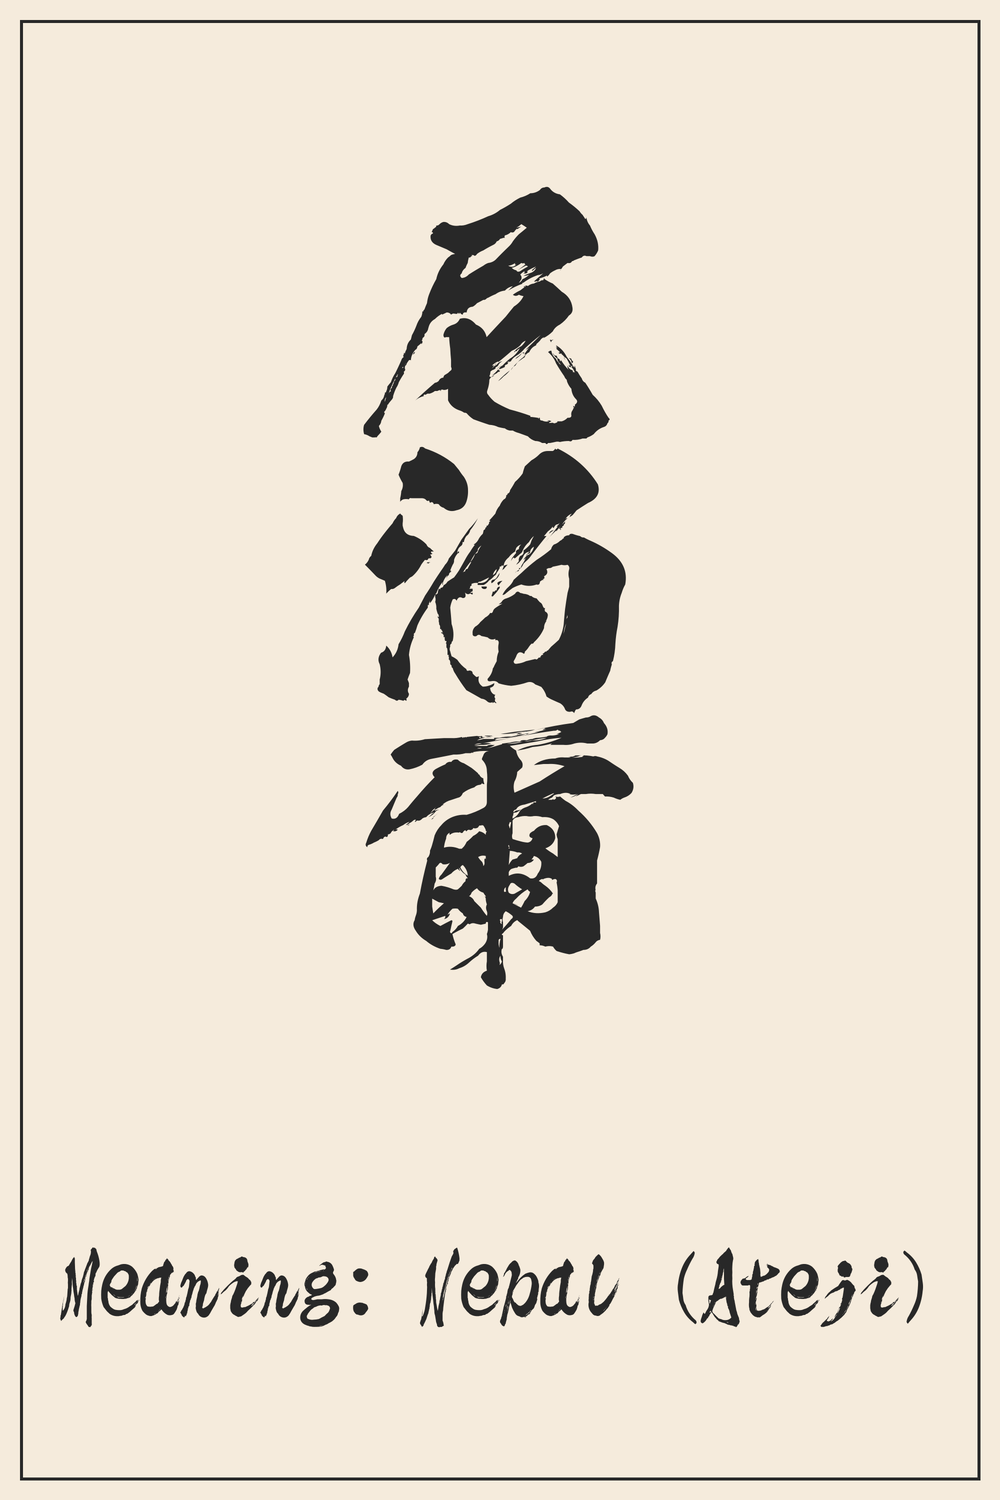 尼泊爾
Meaning: Nepal (Ateji)